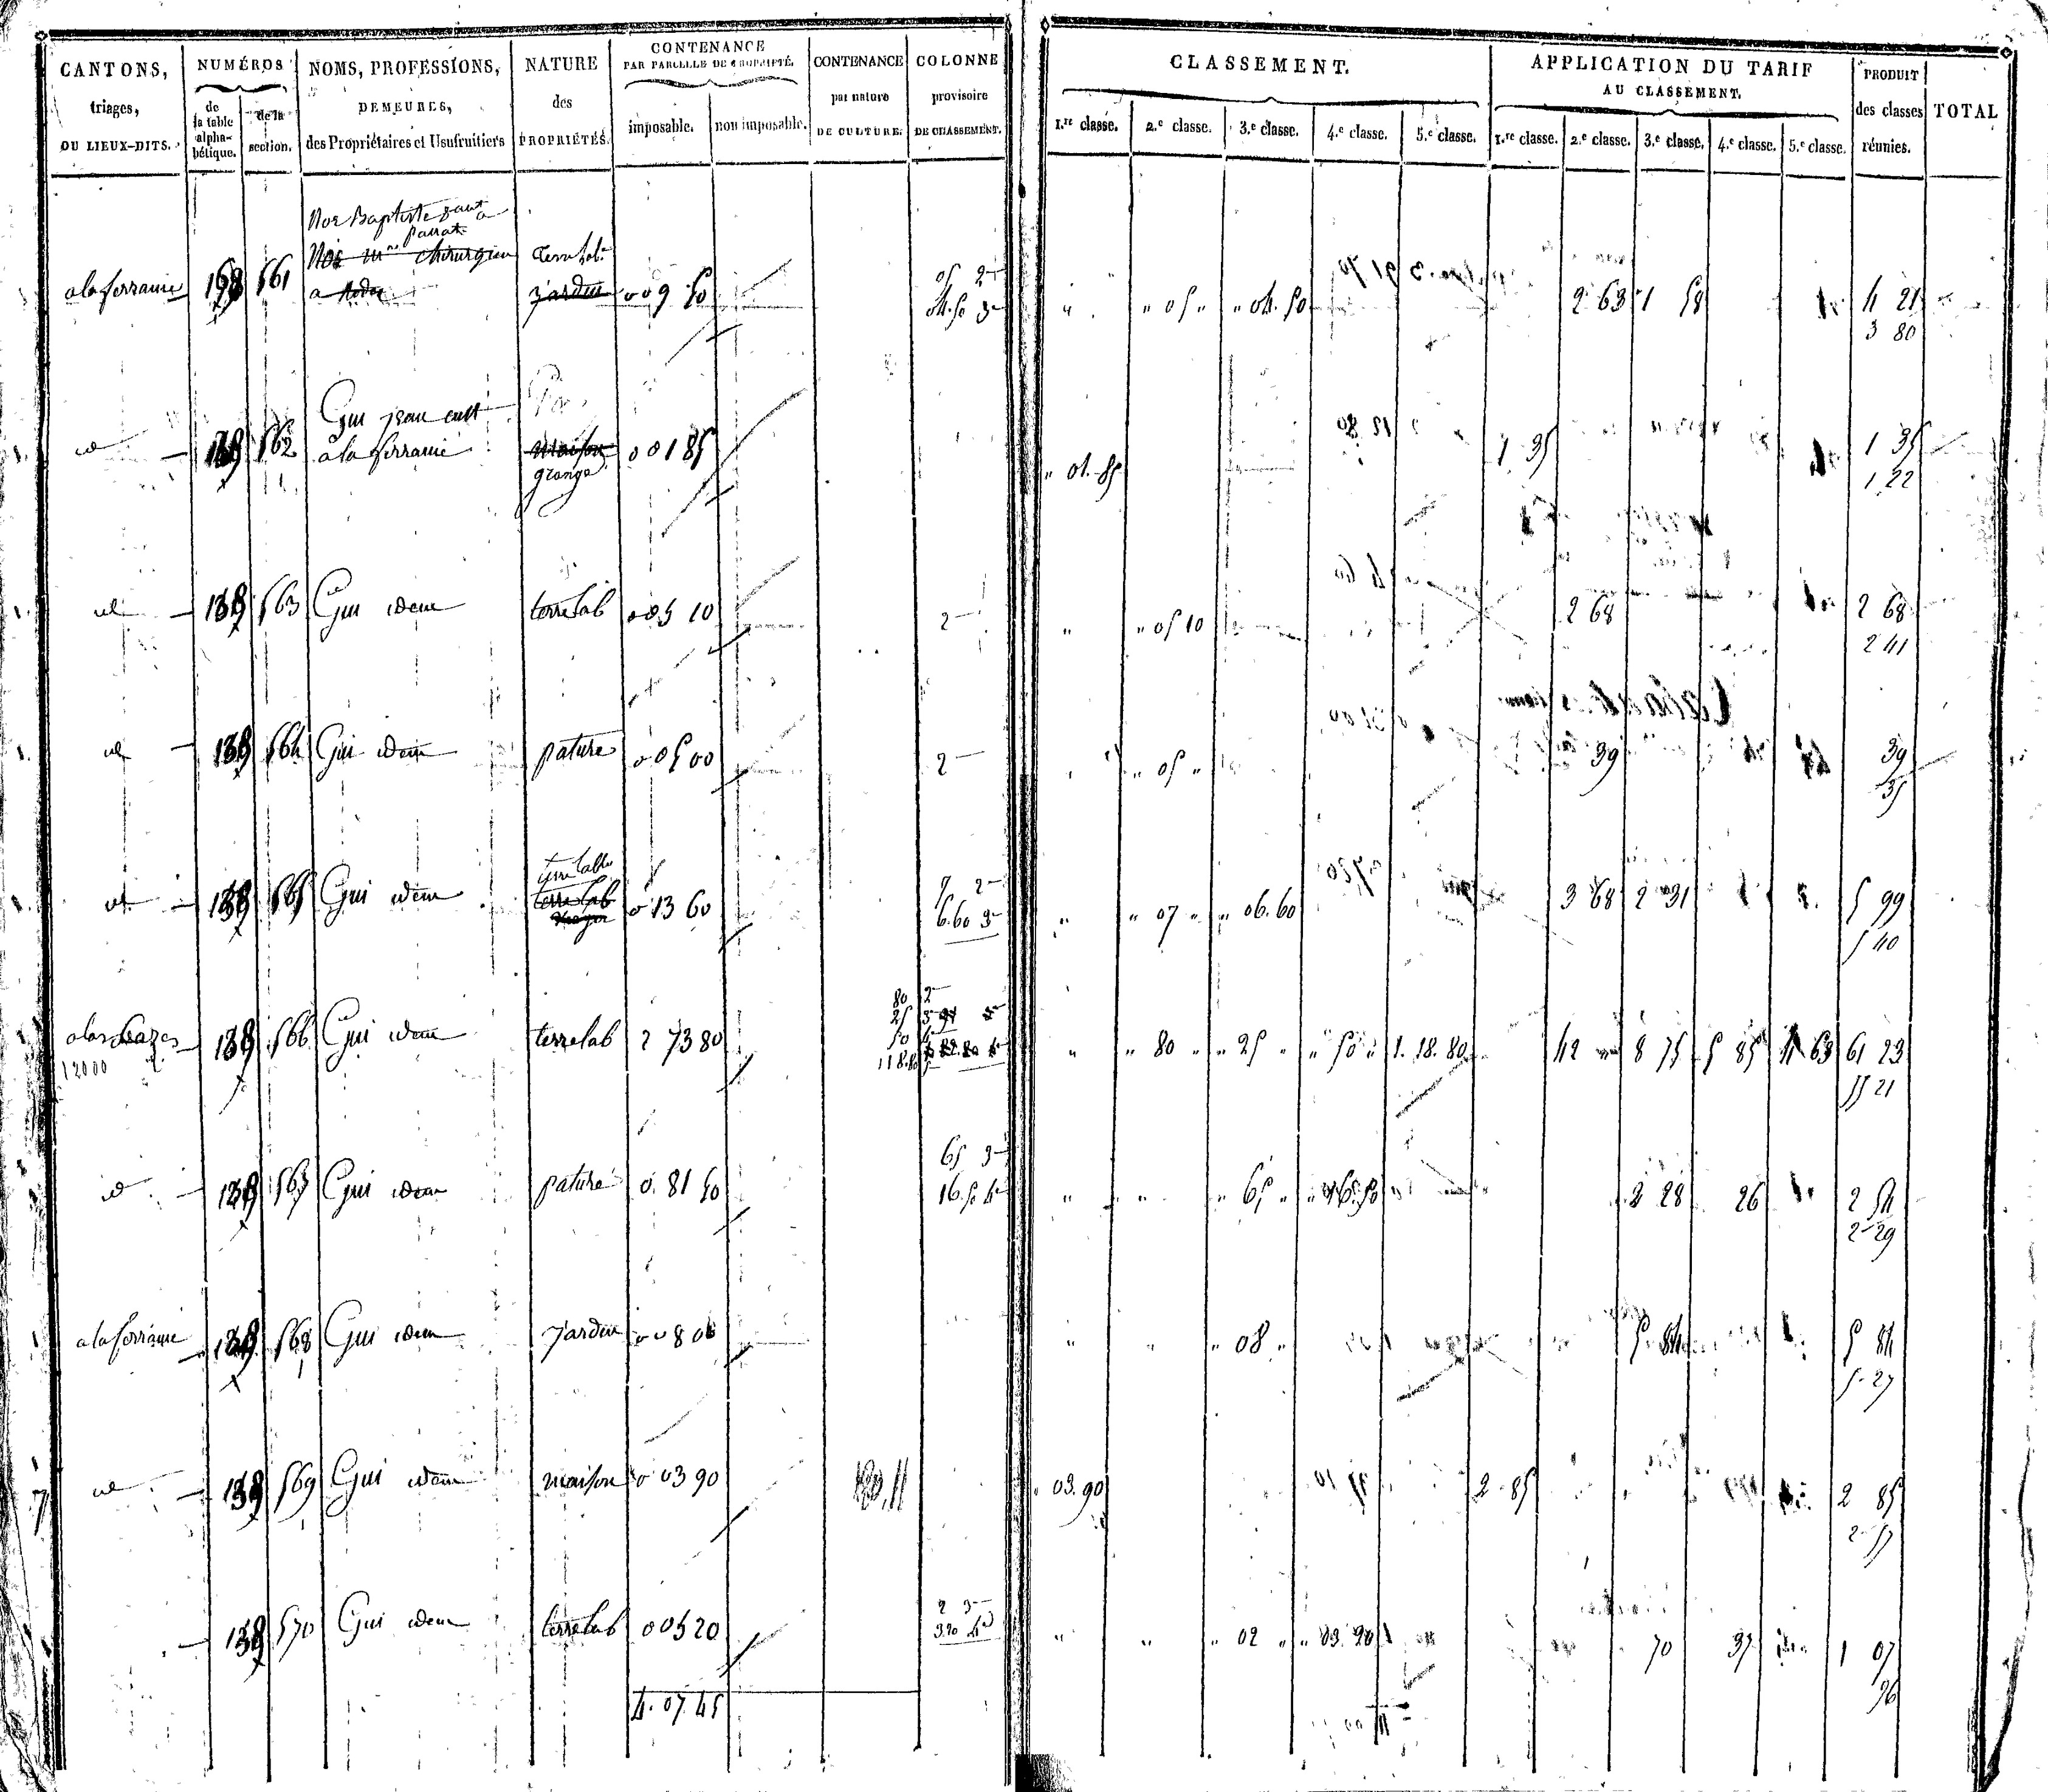 CANTONS, triages, OU LIEUX-DITS.
NUMÉROS de la table alphabétique. de la section.
NOMS, PROFESSIONS, DEMEURES, des Propriétaires et Usufruitiers
NATURE des PROPRIÉTÉS.
CONTENANCE PAR PARCELLE DE PROPRIÉTÉ. imposable. non imposable.
CONTENANCE par nature DE CULTURE.
COLONNE provisoire DE CLASSEMENT.
CLASSEMENT.
1.re classe. 2.e classe. 3.e classe. 4.e classe. 5.e classe.
APPLICATION DU TARIF AU CLASSEMENT.
1.re classe. 2.e classe. 3.e classe. 4.e classe. 5.e classe.
PRODUIT des classes réunies.
TOTAL
Baptiste
chirurgien
a la ferrairie 561 jardin 0 09 50 05 2 " " 05 " " 04. 50 2 63 1 58 4 21
04.50 3 3 80
Gui jean cult
id 562 a la ferrairie maison 0 01 85 " 01. 85 1 35 1 35
grange 1 22
id 138 563 Gui idem terre lab 0 05 10 2 " " 05 10 2 68 2 68
2 41
id 138 564 Gui idem pature 0 05 00 2 " " 05 " 39 39
35
terre lab
id 138 565 Gui idem terre lab 0 13 60 7 2 " " 07 " " 06. 60 3 68 2 31 5 99
6.60 3 5 40
80 2
25 3
50 4
138 566 Gui idem terre lab 2 73 80 118.80 5 " " 80 " " 25 " " 50 " 1. 18. 80 42 8 75 5 85 4 63 61 23
12000 55 21
65 3
id 138 567 Gui idem pature 0. 81 50 16.50 4 " " " 65 " " 16. 50 2 28 26 2 54
2 29
a la ferrairie 138 568 Gui idem jardin 0 08 00 " " " 08 " 5. 84 5 84
5 27
id 138 569 Gui idem maison 0 03 90 " 03. 90 2 85 2 85
2 57
2 3
138 570 Gui idem terre lab 0 05 20 3.20 4 " " " 02 " " 03. 20 70 37 1 07
96
4. 07. 45